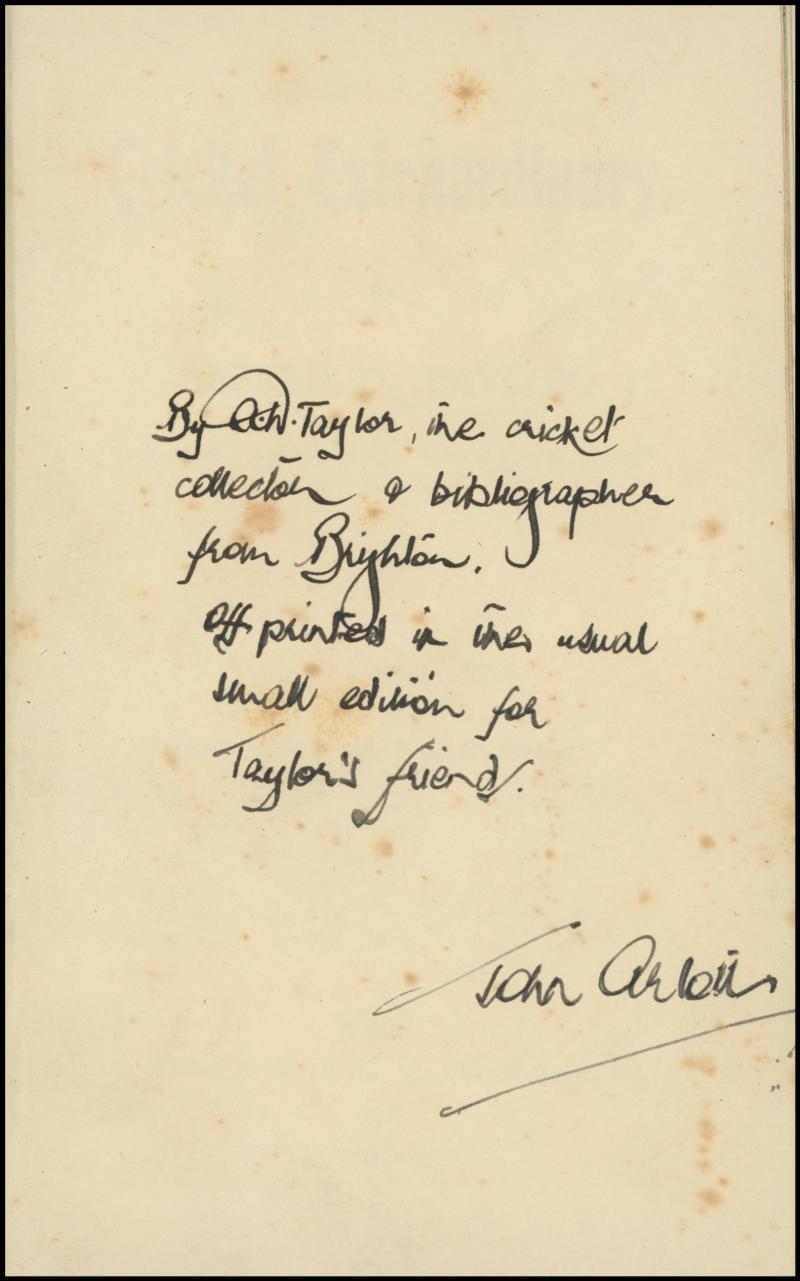 By A.D. Taylor, the cricket
collector & bibliographer
from Brighton.
Off printed in the usual
small edition for
Taylor's friends.
John Arlott